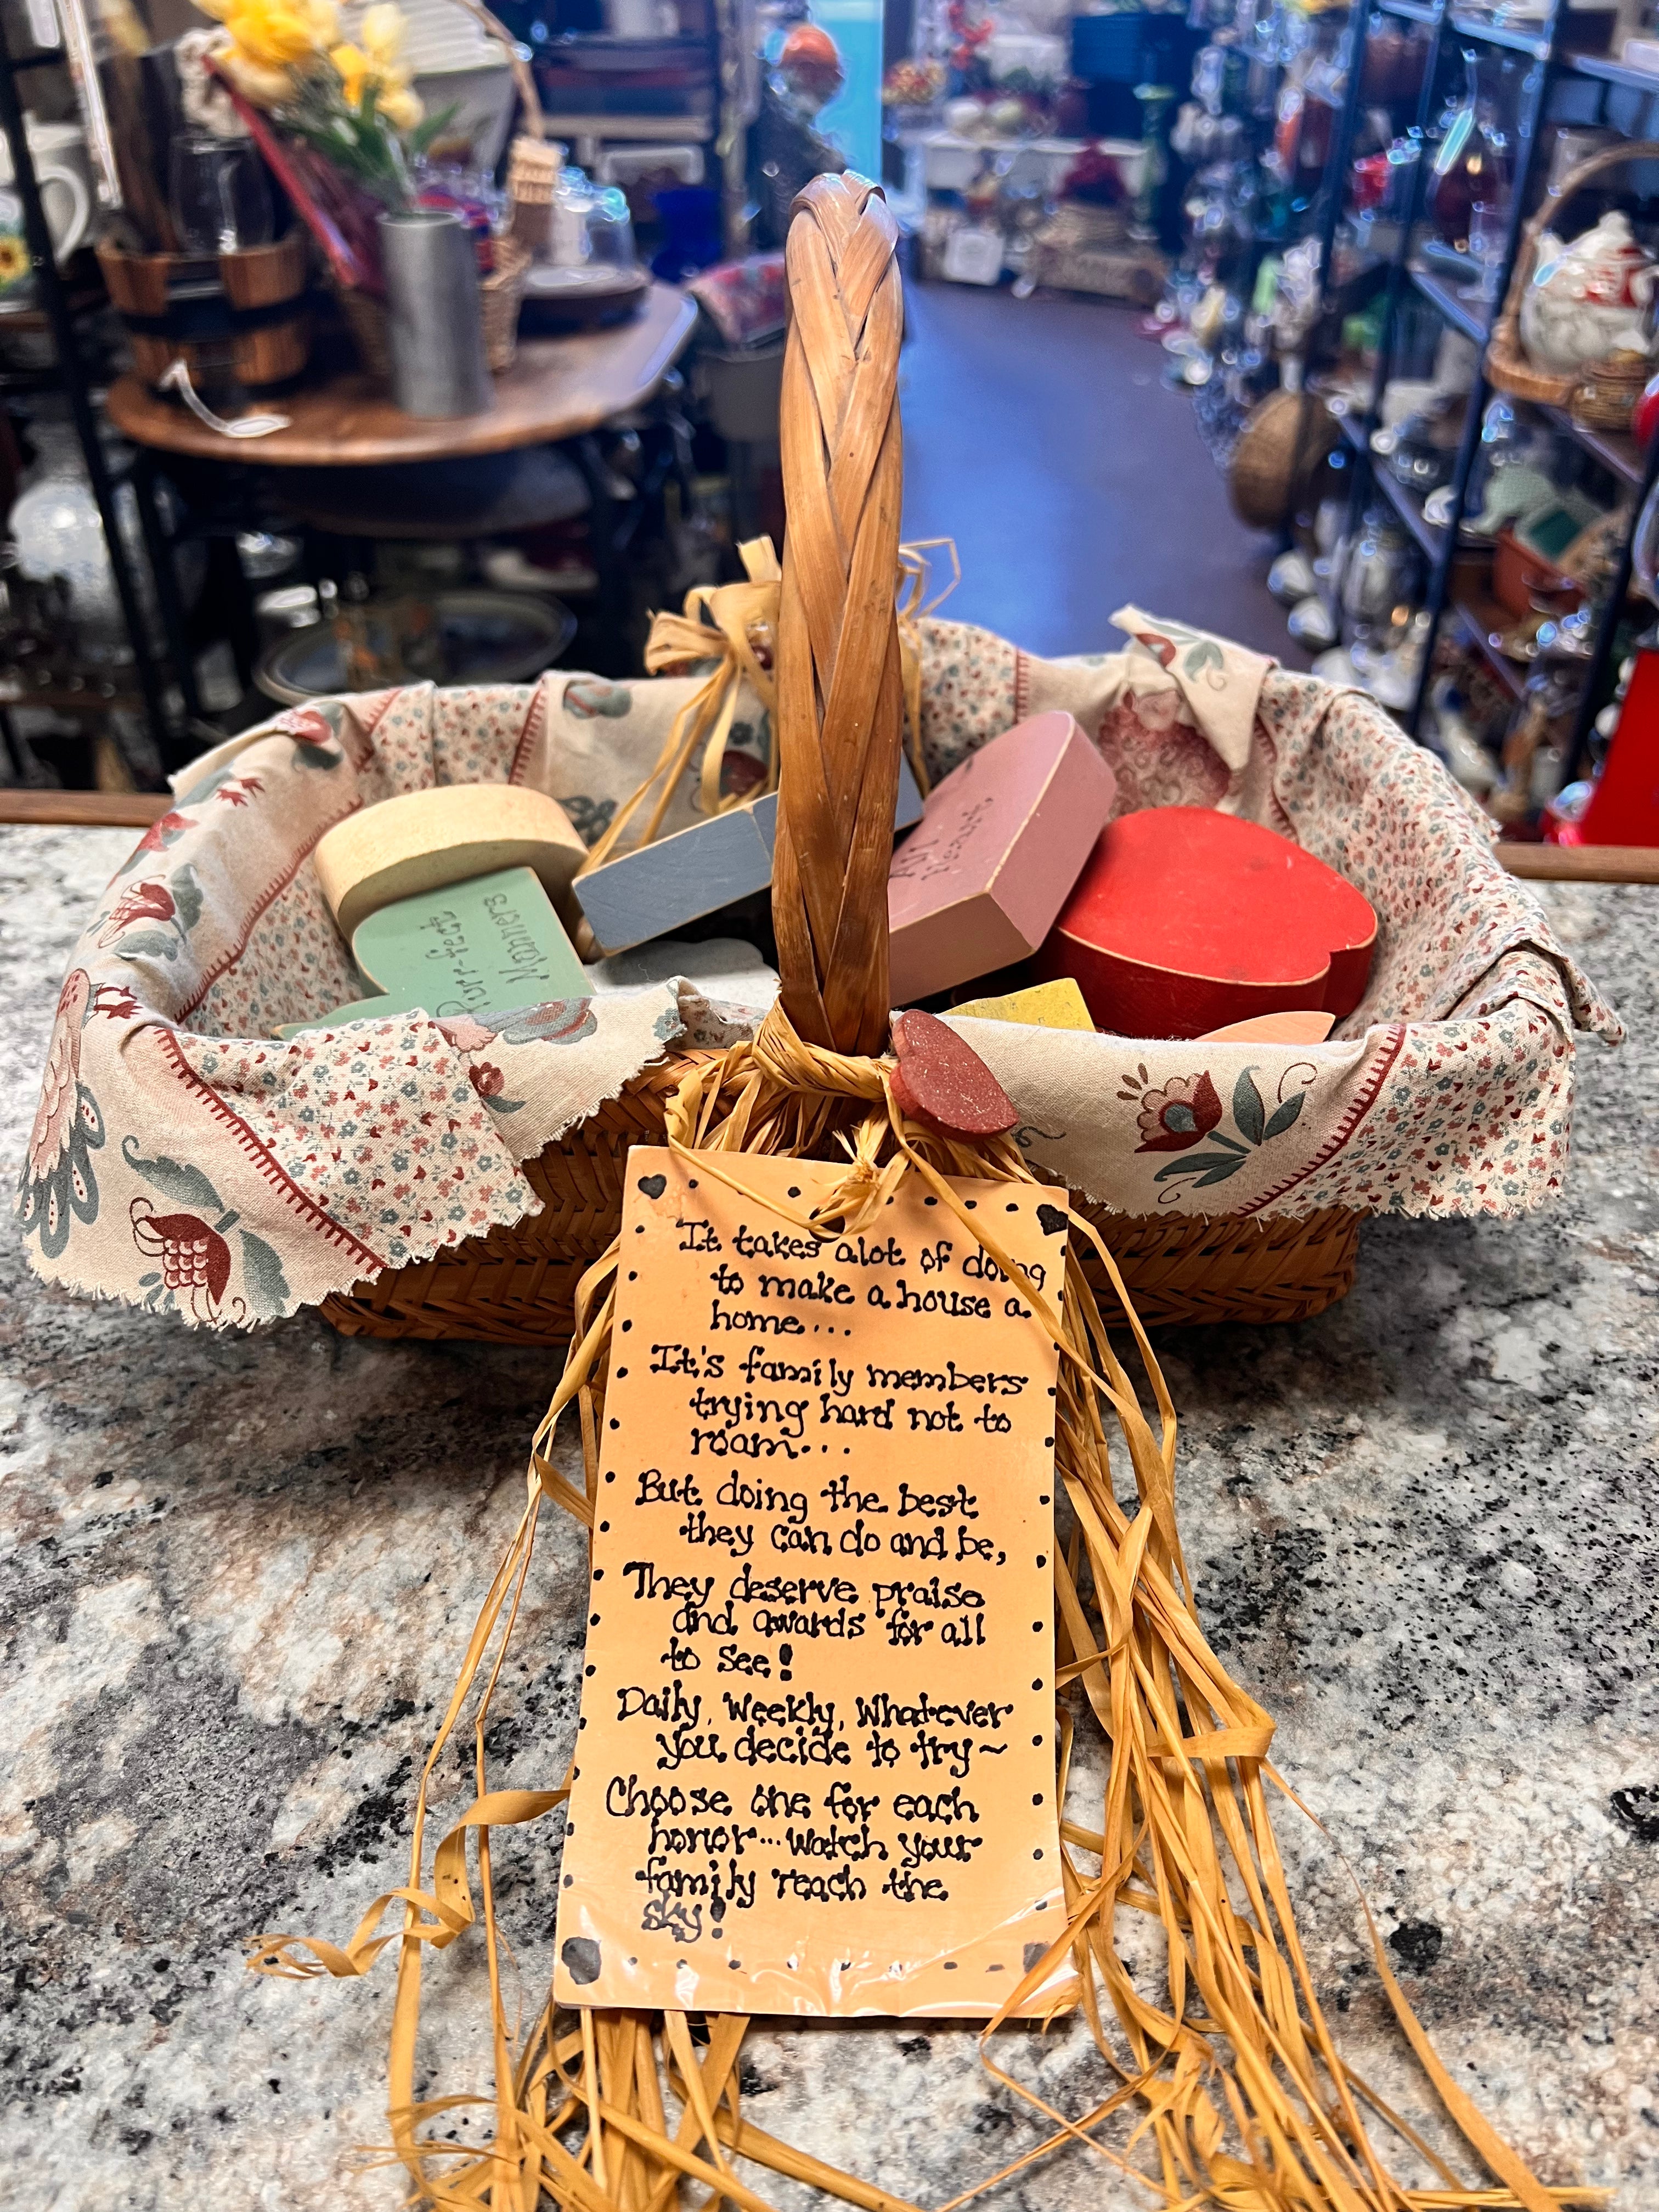 Purr-fect
Manners
Heart
It takes alot of doing
to make a house a
home...
It's family members
trying hard not to
roam...
But doing the best
they can do and be,
They deserve praise
and awards for all
to see!
Daily, Weekly, Whatever
you decide to try~
Choose one for each
honor...watch your
family reach the
sky!